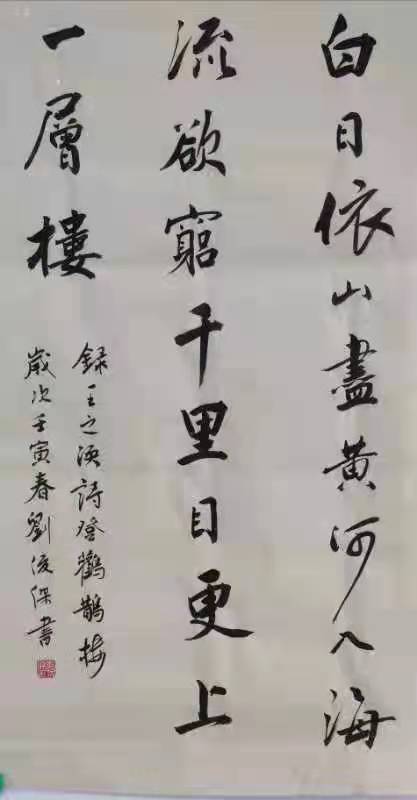 白日依山盡黃河入海
流欲窮千里目更上
一層樓
録王之渙詩登鸛鵲樓
歲次壬寅春劉俊保書